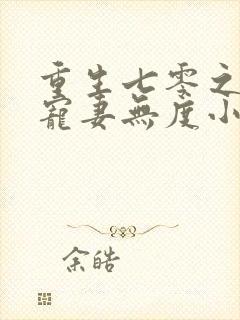 重生七零之
寵妻無度小
余皓